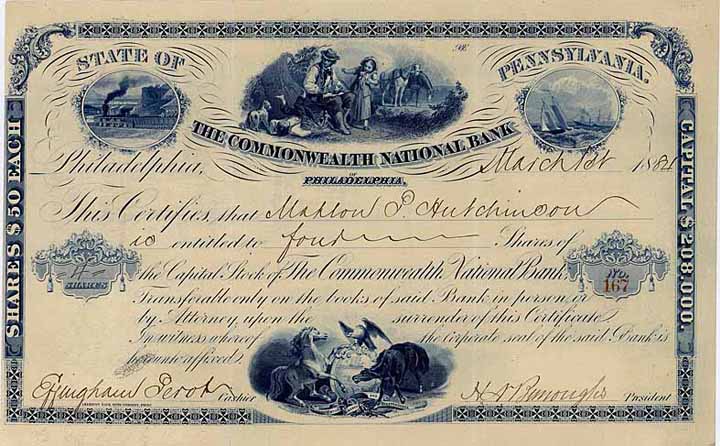 STATE OF PENNSYLVANIA.
THE COMMONWEALTH NATIONAL BANK
OF
PHILADELPHIA.
Philadelphia, March 1st 1884
This Certifies, that Mahlon P. Hutchinson
is entitled to four Shares of
the Capital Stock of The Commonwealth National Bank
Transferable only on the books of said Bank in person or
by Attorney upon the surrender of this Certificate
In witness whereof the corporate seal of the said Bank is
hereunto affixed.
4
SHARES
No.
167
SHARES $50 EACH
CAPITAL $208,000.
Effingham Perot Cashier
H. N. Burroughs President